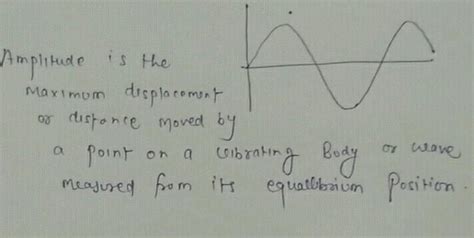 Amplitude is the
maximum displacement
or distance moved by
a point on a vibrating Body or wave
measured from its equallibrium Position.